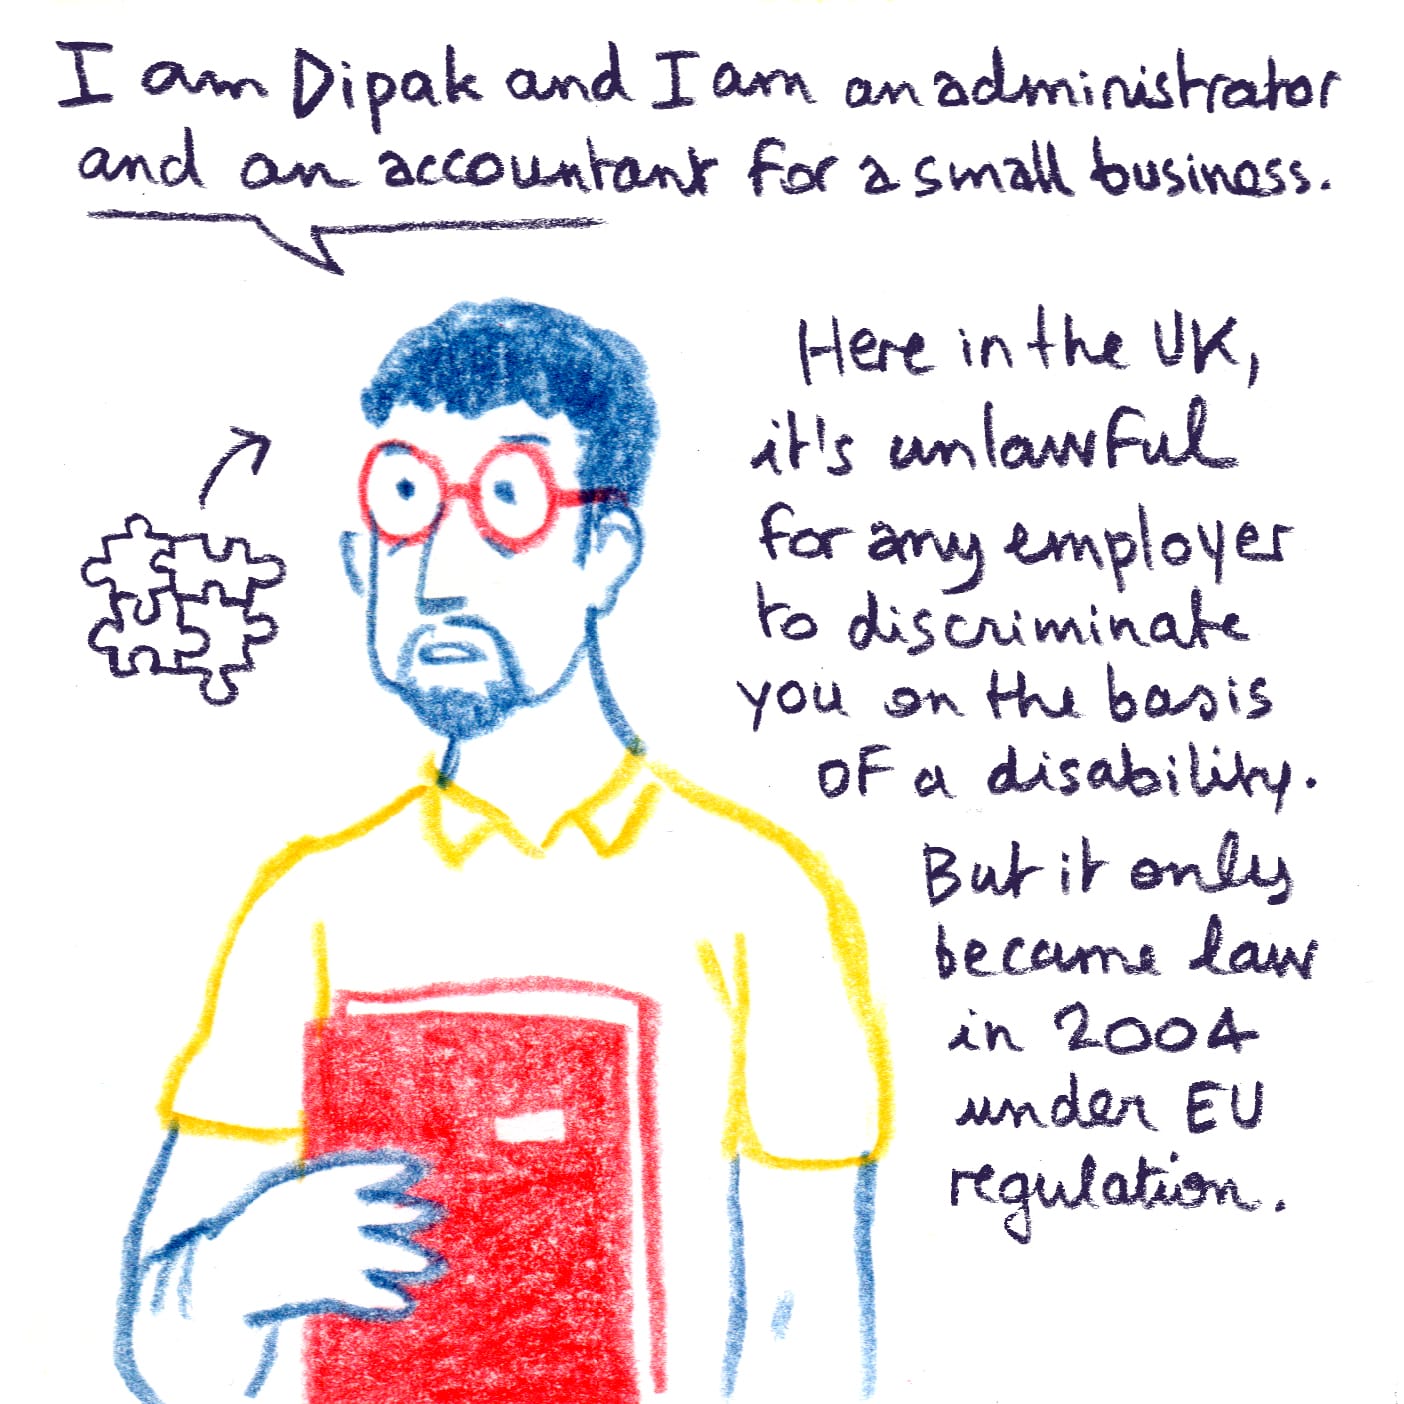 I am Dipak and I am an administrator
and an accountant for a small business.
Here in the UK,
it's unlawful
for any employer
to discriminate
you on the basis
of a disability.
But it only
became law
in 2004
under EU
regulation.